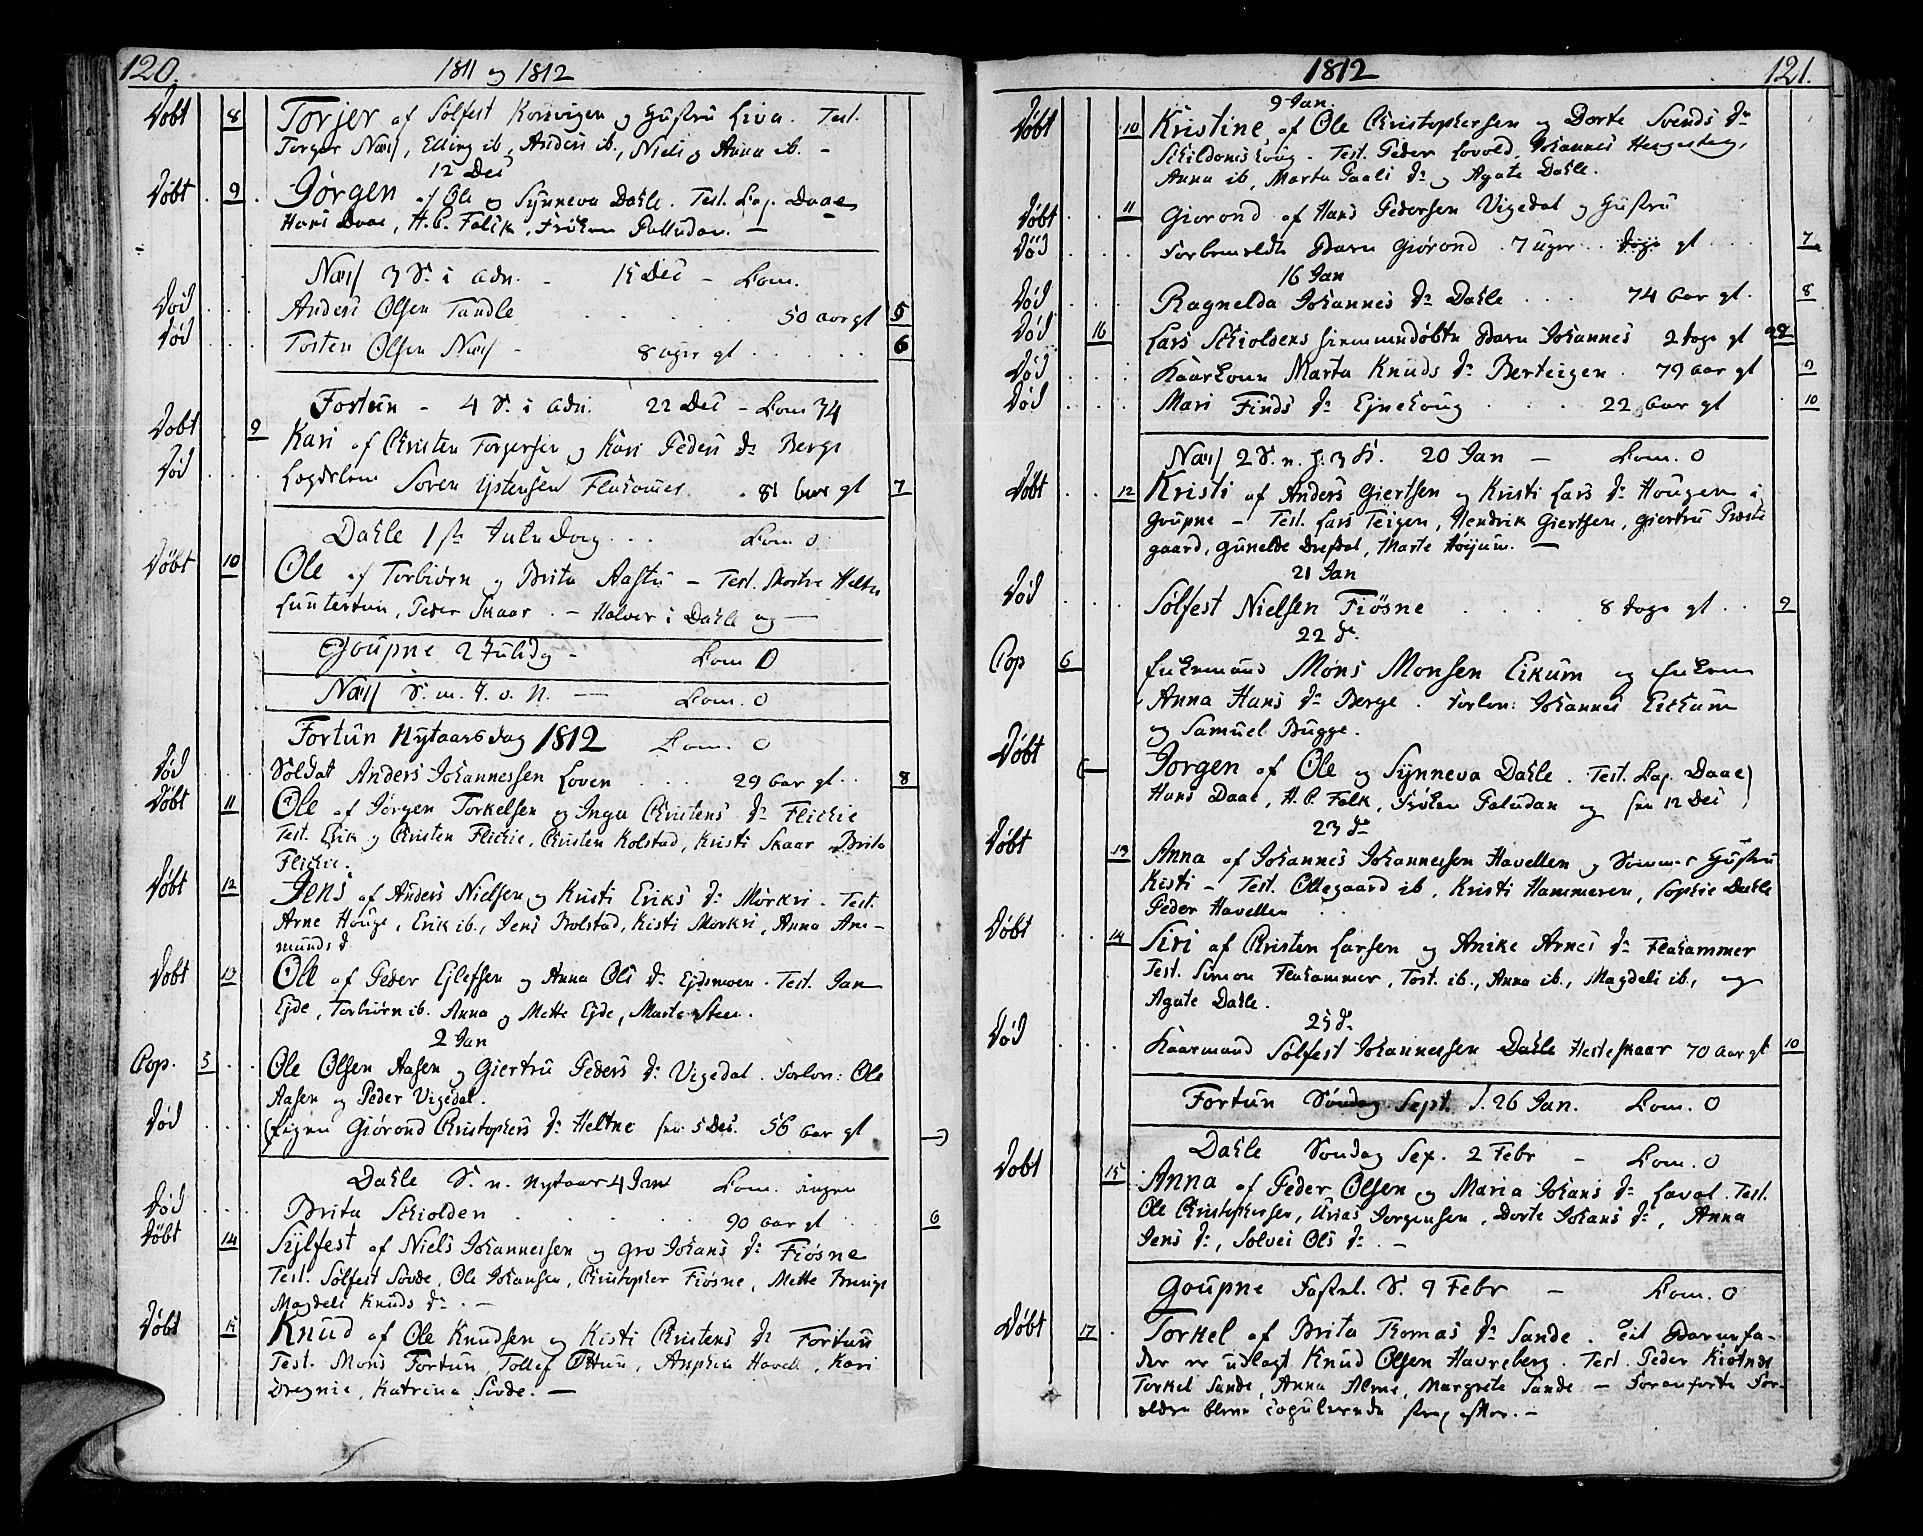 120.
1811 og 1812
Døbt 8 Torjer af Sølfest Korsvigen og Hustru Liva. Test.
Torger Næss, Elling ib, Anders ib., Niels og Anna ib. -
12 Des
Døbt 9 Jørgen af Ole og Synneva Dahle. Test. Cap. Daae
Hans Daae, H. C. Falck, Frøken Palludan. -
Næss 3 S. i Adv. - 15 Dec - Com.
Død Anders Olsen Tandle 50 Aar gl 5
Død Tosten Olsen Næss - 8 uger gl 6
Fortun - 4 S. i Adv. 22 Dec - Com 34
Døbt 9 Kari af Christen Torgersen og Kari Peders Dr Berge
Død Lægdslem Søren Ystensen Flahamer 81 Aar gl 7
Dahle 1ste Juledag Com. 0
Døbt 10 Ole af Torbiørn og Brita Aasetu - Test. Morten Heltne
Peder Skaar. - Halvor i Dahle og
Goupne 2 Juledg - Com 0
Næss S. m. J. o. N. - Com. 0
Fortun Nytaarsdag 1812 Com. 0
Død Soldat Anders Johannessen Loven 29 Aar gl 8
Døbt 11 Ole af Jørgen Torkelsen og Inga Christens Dr Flickie
Test. Erik og Christen Flickie, Christen Kolstad, Kristi Skaar Brita
Flickie.
Døbt 12 Jens af Anders Nielsen og Kristi Eriks Dr Mørkri. Test.
Arne Houge, Erik ib., Jens Bolstad, Kisti Morkri, Anna Am-
munds d
Døbt 13 Ole af Peder Ejlefsen og Anna Ols Dr Ejdsmoen. Test. Jan
Ejde, Torbiørn ib. Anna og Mette Ejde, Marte Steen.
2 Jan
Cop. 5 Ole Olsen Aasen og Giertru Peders Dr Vigedal. Forlov: Ole
Aasen og Peder Vigedal.
Død Pigen Giørond Christophers Dr Heltne fra 5 Des. 56 Aar gl
Dahle S. n. Nytaar 4 Jan Com. ingen
Død Brita Skiolden 90 Aar gl 6
Døbt 14 Sylfest af Niels Johannessen og Gro Johans Dr Fiøsne
Test. Sølfest Søvde, Ole Johansen, Christopher Fiøsne, Mette
Magdeli Knuds Dr. -
Døbt 15 Knud af Ole Knudsen og Kisti Christens Dr Fortun
Test. Mons Fortun, Tollef Ottun, Havell, Kari
Dregnie, Katrina Søvde. -
1812
121.
9 Jan.
Døbt 10 Kristine af Ole Christophersen og Dorte Svends Dr
Test. Peder Lovold, Johannes
Anna ib, Marta Paals Dr og Agate Dahle.
Døbt 11 Giørond af Hans Pedersen Vigedal og Hustru
Død Forbemeldte Barn Giørond 7 uger gl 7
16 Jan
Død Ragnelda Johannes Dr Dahle 74 Aar gl. 8
Død 16 Lars Skioldens hiemmedøbte Barn Johannes 2 dage gl
Død Kaarkone Marta Knuds Dr Berteigen. 79 Aar gl 9
Død Mari Finds Dr Ejnehoug 22 Aar gl 10
Næss 2 S. n. H. 3 K. 20 Jan - Com. 0
Døbt 12 Kristi af Anders Giertsen og Kristi Lars Dr Hougen i
Goupne - Test. Lars Teigen, Hendrik Giertsen, Giertru Præste
gaard, Gunelde Drefdal, Marte Høijum. -
21 Jan
Død Sølfest Nielsen Fiøsne 8 dage gl 9
22 d.
Cop 6 Enkemand Mons Monsen Eikum og Enken
Anna Hans Dr Berge. Forlov: Johannes Eickum
og Samuel Bugge.
Døbt Jørgen af Ole og Synneva Dahle. Test. Cap. Daae
Hans Daae, H. C. Falk, Frøken Paludan og fra 12 Des
23 d.
Døbt 13 Anna af Johannes Johannessen Havellen og Sammes Hustru
Kisti - Test. Ollegaard ib, Kristi Hammeren, Sophie Dahle
Peder Havellen
Døbt 14 Siri af Christen Larsen og Anike Arnes Dr Flahammer
Test. Simon Flahammer, Tost. ib., Anna ib., Magdeli ib., og
Agate Dahle.
25 d.
Død Kaarmand Sølfest Johannessen Dahle Hesteskaar 70 Aar gl 10
Fortun Søndag Sept. d. 26 Jan. Com. 0
Dahle Søndag Sex. 2 Febr - Com. 0
Døbt 15 Anna af Peder Olsen og Maria Johans Dr Laval. Test.
Ole Christophersen, Urias Jørgensen, Dorte Johans Dr, Anna
Jens Dr, Solvei Ols Dr. -
Goupne Fastel. S. 9 Febr - Com. 0
Døbt 17 Torkel af Brita Thomas Dr Sande. Til Barnefa-
der er udlagt Knud Olsen Havreberg. Test. Peder Kiølnes
Torkel Sande, Anna Alme, Margrete Sande. - Foranførte For-
ældre bleve copulerede strax efter. -